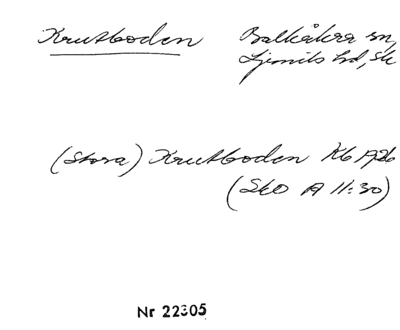 Krutboden Balkåkra sn,
Ljunits hd, Sk
(Stora) Krutboden Kb 1926
(SkO A 11:30)
Nr 22305